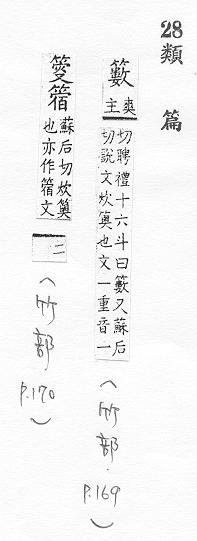 28類 篇
籔 爽主切聘禮十六斗曰籔又蘇后切說文炊䉛也文一重音一
(竹部. p.169)
籔䈹 蘇后切炊䉛也亦作䈹文二
(竹部 p.170)